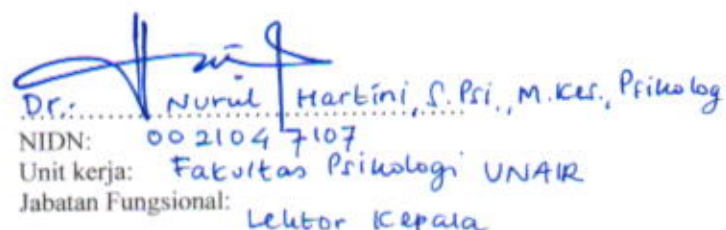 Dr. Nurul Hartini, S.Psi., M.Kes., Psikolog
NIDN: 0021047107
Unit kerja: Fakultas Psikologi UNAIR
Jabatan Fungsional: Lektor Kepala